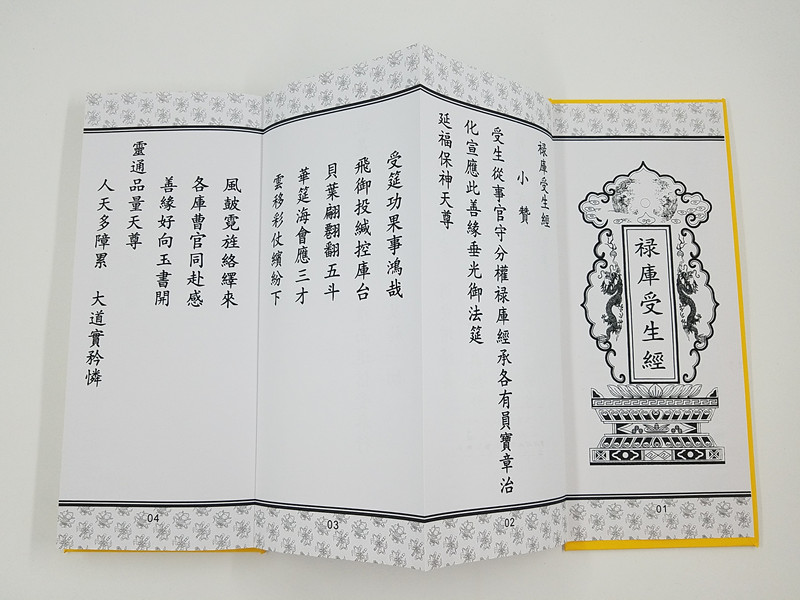 祿庫受生經
01
祿庫受生經
小贊
受生從事官守分權祿庫經承各有員寶章治
化宣應此善緣垂光御法筵
延福保神天尊
02
受筵功果事鴻哉
飛御投緘控庫台
貝葉翩翻五斗
華筵海會應三才
雲移彩仗繽紛下
03
風皷霓旌絡繹來
各庫曹官同赴感
善緣好向玉書開
靈通品量天尊
人天多障累 大道實矜憐
04